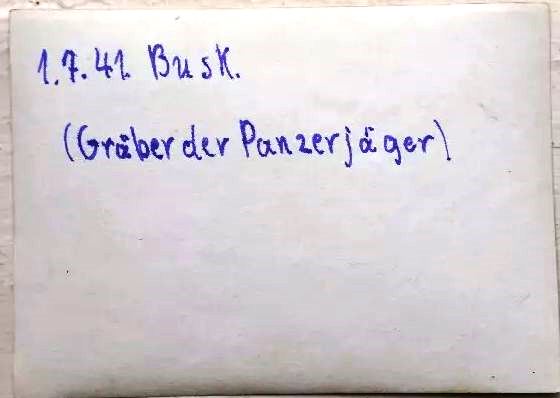 1.7.41. Busk.
(Gräber der Panzerjäger)